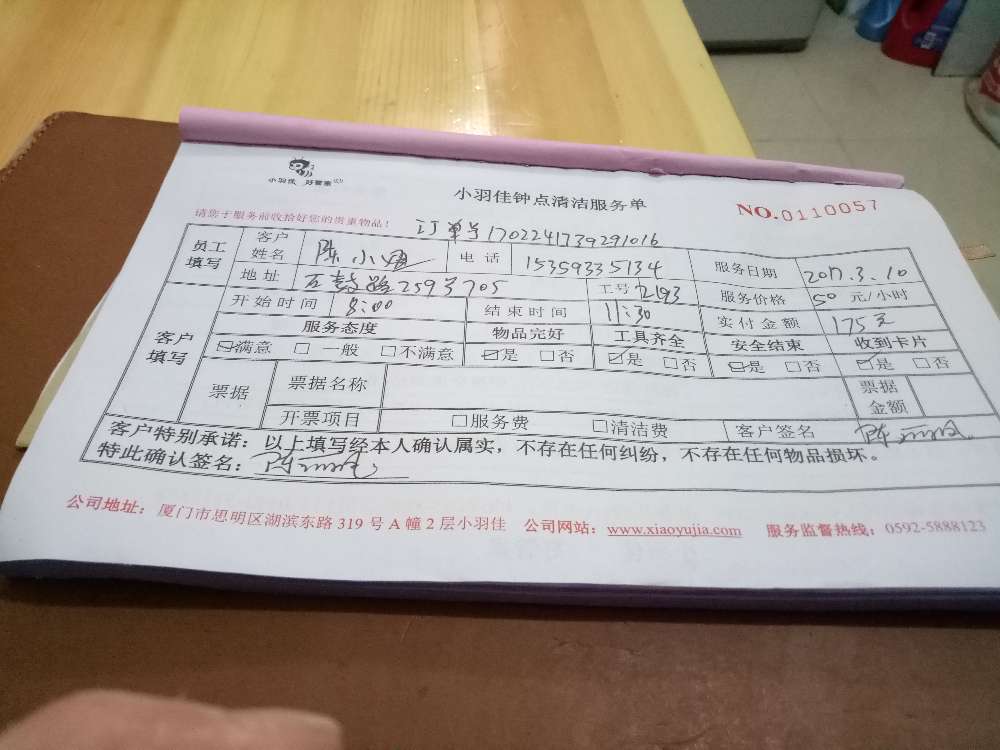 小羽佳 好管家
小羽佳钟点清洁服务单
NO.0110057
请您于服务前收拾好您的贵重物品!
订单号1702241739291016
员工填写 客户姓名 陈小 电话 15359335134 服务日期 2017.3.10
地址 2593705 工号 2193 服务价格 50 元/小时
客户填写 开始时间 8:00 结束时间 11:30 实付金额 175元
服务态度 物品完好 工具齐全 安全结束 收到卡片
☑满意 □一般 □不满意 ☑是 □否 ☑是 □否 ☑是 □否 ☑是 □否
票据 票据名称 票据金额
开票项目 □服务费 □清洁费 客户签名 陈
客户特别承诺:以上填写经本人确认属实,不存在任何纠纷,不存在任何物品损坏。
特此确认签名:陈
公司地址:厦门市思明区湖滨东路 319 号 A 幢 2 层小羽佳 公司网站:www.xiaoyujia.com 服务监督热线:0592-5888123